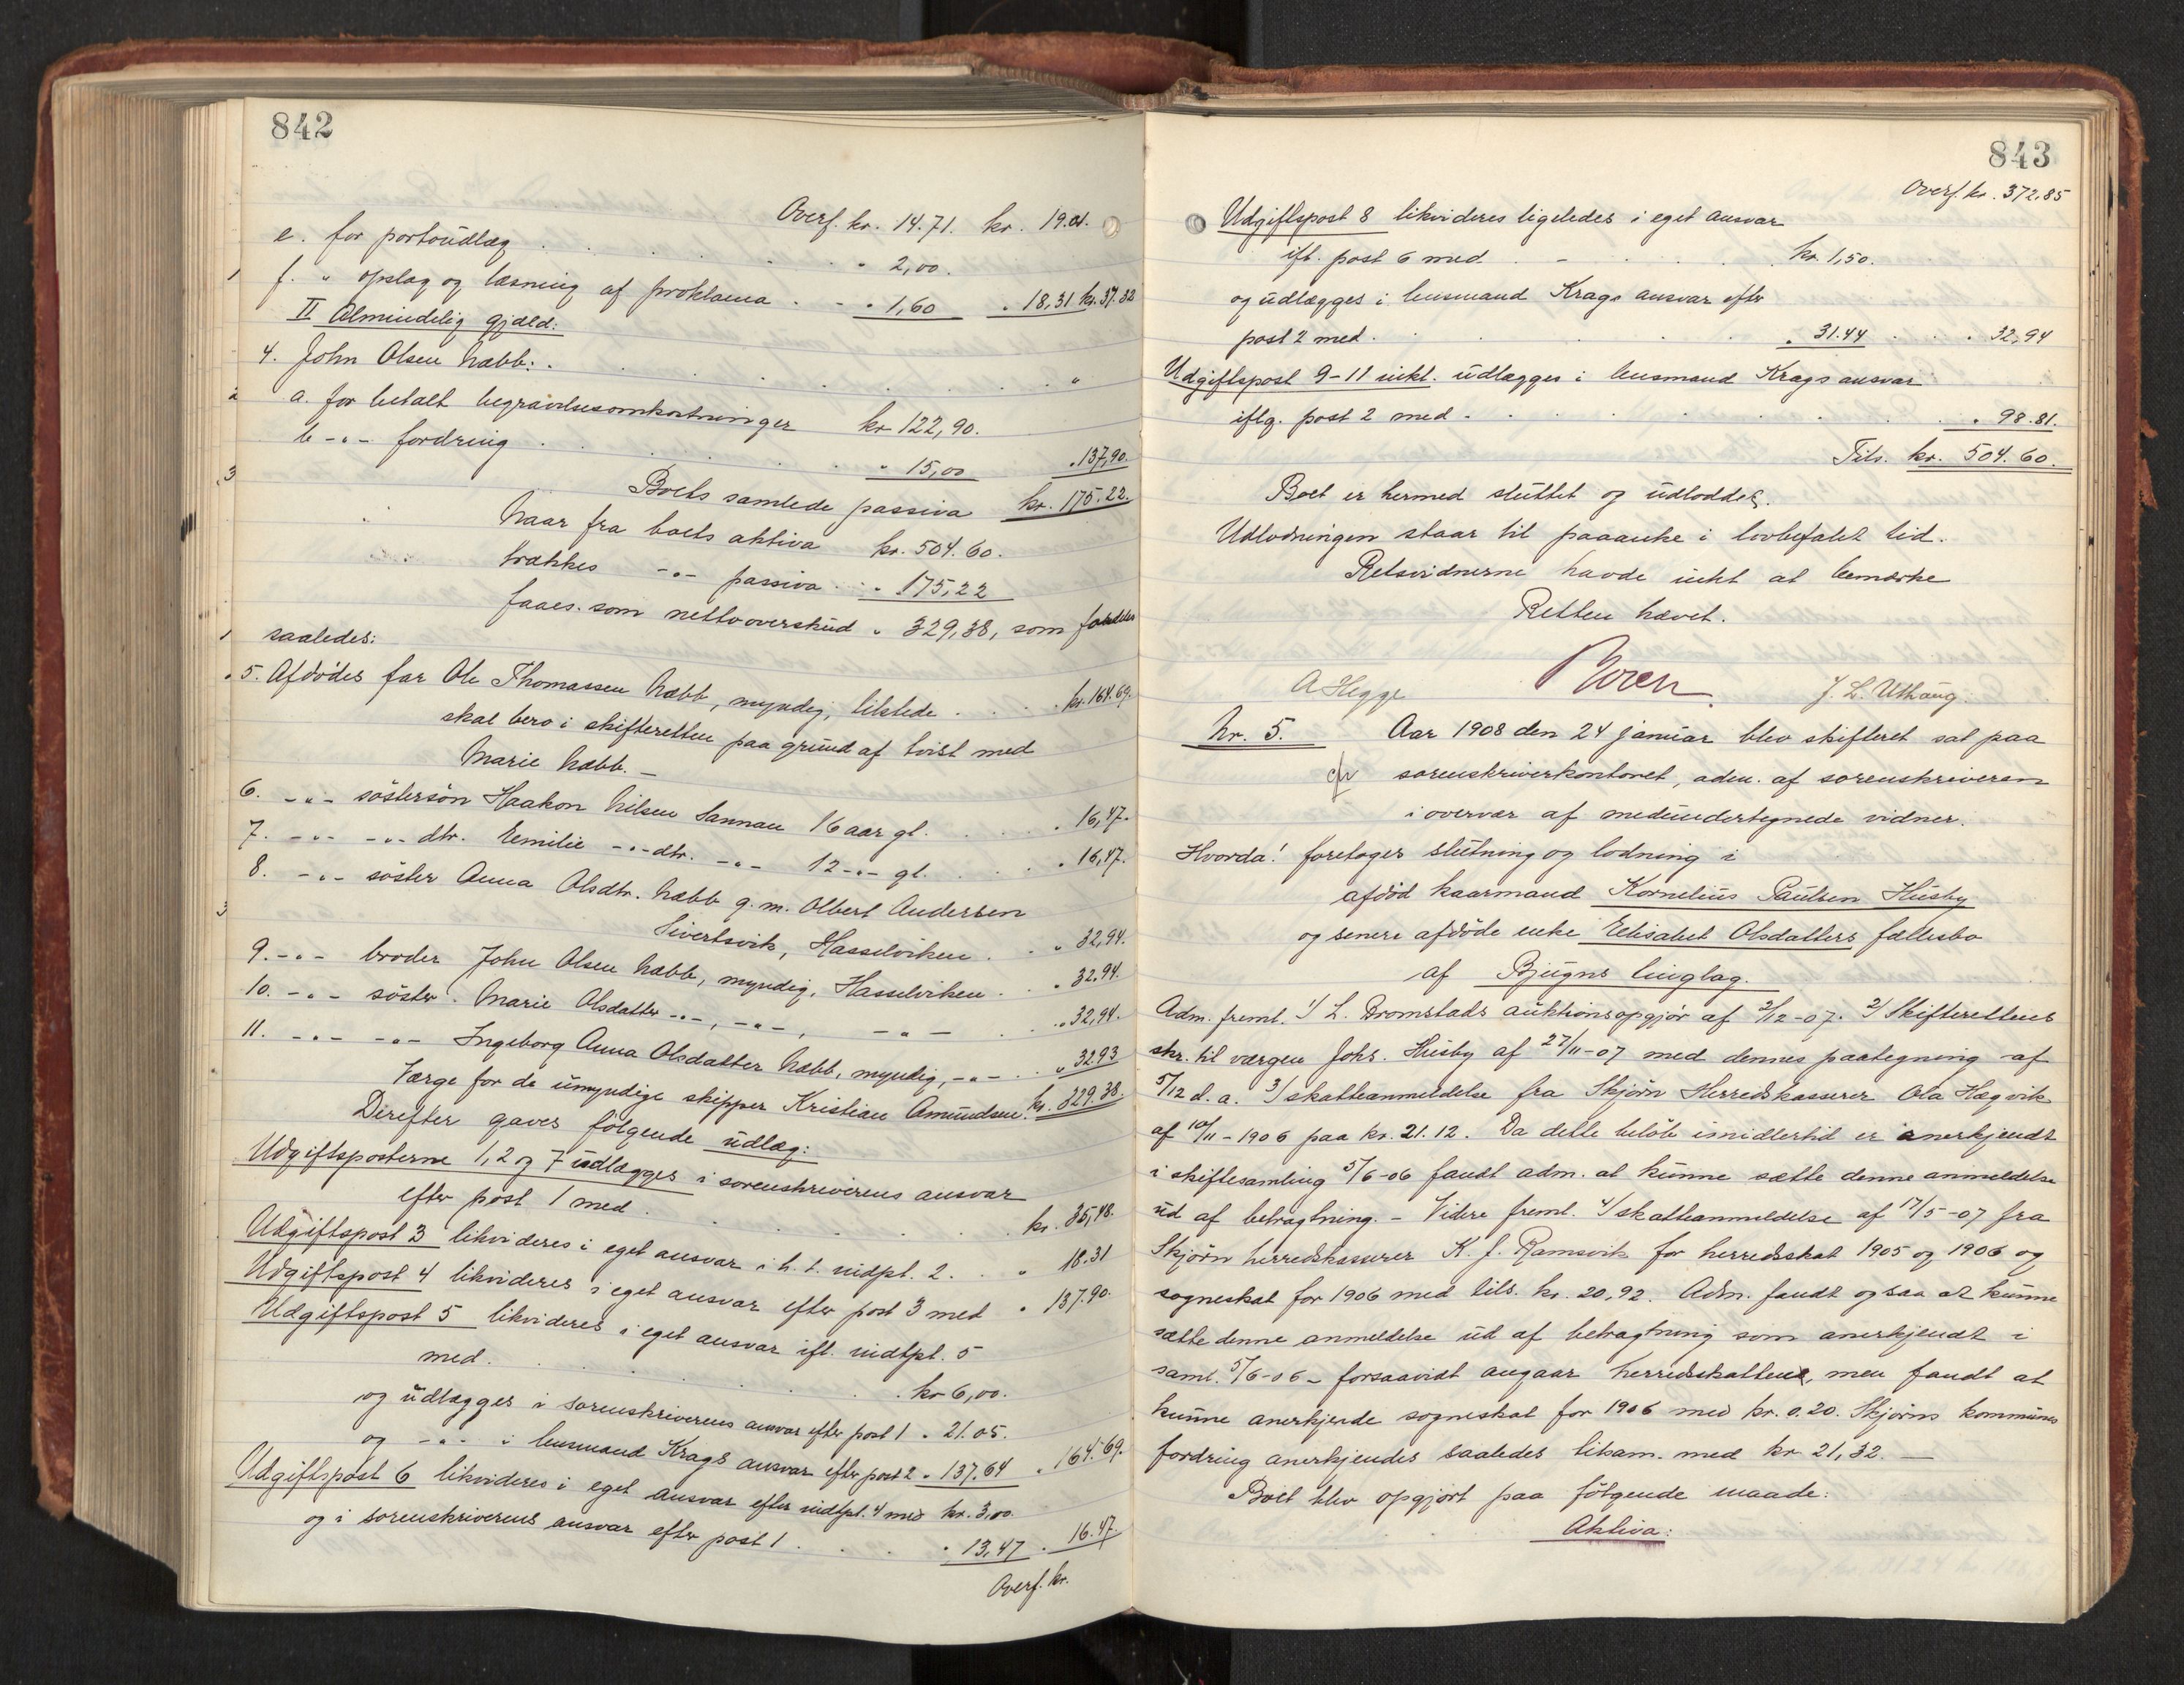 842
Overf. kr. 14.71. kr. 19.01.
e. for portoudlæg . . . . . " 2,00.
f. " opslag og læsning af proklama . - " 1,60 " 18,31 kr. 37.32
II Almindelig gjæld:
4. John Olsen Næbb: . . . . . . . "
a. for betalt begravelsesomkostninger kr 122,90.
b -"- fordring . . . . . . " 15,00 " 137,90.
Boets samlede passiva kr. 175.22.
Naar fra boets aktiva kr. 504.60.
trækkes -"- passiva . " 175,22
faaes som nettooverskud " 329,38, som fordeles
saaledes:
5. Afdødes far Ole Thomassen Næbb, myndig, tilstede . . . kr. 164.69.
skal bero i skifteretten paa grund af tvist med
Marie Næbb. -
6. -"- søstersøn Haakon Nilsen Sannan 16 aar gl. . . . . " 16,47.
7. -"- -"- dtr. Emilie -"- dtr. -"- 12 -"- gl. . . . " 16,47.
8. -"- søster Anna Olsdtr. Næbb g. m. Olbert Andersen
Sivertsvik, Hasselviken . . " 32,94.
9. -"- broder John Olsen Næbb, myndig, Hasselviken . . " 32.94.
10. -"- søster Marie Olsdatter -"-, -"-, -"- . . " 32,94.
11. -"- -"- Ingeborg Anna Olsdatter Næbb, myndig, -"- . . " 3293
Værge for de umyndige skipper Kristian Amundsen. kr. 329.38.
Derefter gaves følgende udlæg:
Udgiftsposterne 1, 2 og 7 udlægges i sorenskriverens ansvar
efter post 1 med . . . . . . kr. 35,48.
Udgiftspost 3 likvideres i eget ansvar i h. t. indpt. 2. . . " 18.31
Udgiftspost 4 likvideres i eget ansvar efter post 3 med " 137.90.
Udgiftspost 5 likvideres i eget ansvar ifl. indtpt. 5
med. . . . . . . . kr 6,00.
og udlægges i sorenskriverens ansvar efter post 1 " 21.05.
og -"- i lensmand Krags ansvar efter post 2 " 137.64 " 164.69.
Udgiftspost 6 likvideres i eget ansvar efter indtpt. 4 med kr. 3,00.
og i sorenskriverens ansvar efter post 1 . . . " 13,47 " 16.47.
Overf. kr.
843
Overf. kr. 372,85
Udgiftspost 8 likvideres ligeledes i eget ansvar
ifl. post 6 med . - . . . kr. 1,50.
og udlægges i lensmand Krags ansvar efter
post 2 med . . . . . " 31.44 . . . " 32,94
Udgiftspost 9-11 inkl. udlægges i lensmand Krags ansvar
iflg. post 2 med . . . . . . . " 98.81.
Tils. kr. 504.60.
Boet er hermed sluttet og udloddet.
Udlodningen staar til paaanke i lovbefalet tid.
Retsvidnerne havde intet at bemærke
Retten hævet.
A Hegge
J. L. Uthaug.
Nr. 5. Aar 1908 den 24 januar blev skifteret sat paa
sorenskriverkontoret, adm. af sorenskriveren
i overvær af medundertegnede vidner.
Hvorda! foretages slutning og lodning i
afdød kaarmand Kornelius Paulsen Husby
og senere afdøde enke Elisabet Olsdatters fællesbo
af Bjugns tinglag.
Adm. freml. 1/ L. Dromstads auktionsopgjør af 2/12-07. 2/ Skifterettens
skr. til værgen Johs. Husby af 27/11-07 med dennes paategning af
5/12 d. a. 3/ skatteanmeldelse fra Skjørn Herredskasserer Ola Hægvik
af 10/11-1906 paa kr. 21.12. Da dette beløb imidlertid er anerkjendt
i skiftesamling 5/6-06 fandt adm. at kunne sætte denne anmeldelse
ud af betragtning. - Videre freml. 4/ skatteanmeldelse af 17/5-07 fra
Skjørn herredskasserer K. J. Ramsvik for herredsskat 1905 og 1906 og
sogneskat for 1906 med tils. kr. 20,92. Adm. fandt ogsaa at kunne
sætte denne anmeldelse ud af betragtning som anerkjendt i
saml. 5/6-06 - forsaavidt angaar herredsskatten, men fandt at
kunne anerkjende sogneskat for 1906 med kr. 0.20. Skjørns kommunes
fordring anerkjendes saaledes tilsam. med kr 21,32. -
Boet blev opgjort paa følgende maade:
Aktiva: